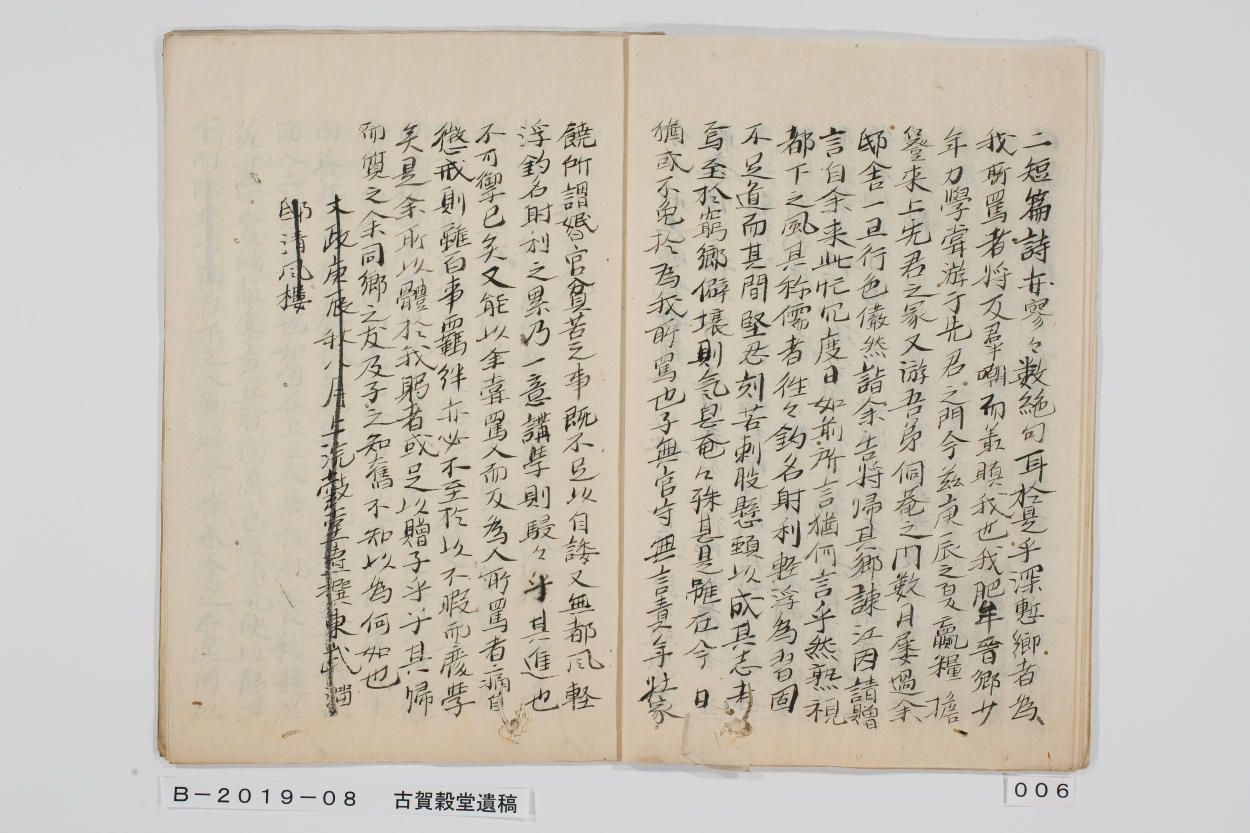 二短篇詩亦寥々數絶句耳於是乎深慙鄉者為
我所罵者將反羣嘲而萬瞋我也我肥牟晉鄉少
年力學嘗游于先君之門今茲庚辰之夏贏糧擔
簦來上先君之冢又游吾弟侗菴之門數月屢過余
邸舍一旦行色儼然詣余告將歸其鄉諫江因請贈
言自余来此忙冗度日如前所言猶何言乎然熟視
都下之風其称儒者徃々釣名射利輕浮為習固
不足道而其間堅忍刻苦刺股懸頸以成其志者
焉至於窮鄉僻壤則氣息奄々殊甚是雖在今日
猶或不免於為我所罵也子無官守無言責年壮家
饒所謂婚官貧苦之事既不足以自諉又無都風輕
浮釣名射利之累乃一意講學則駸々乎其進也
不可禦已矣又能以余嘗罵人而反為人所罵者痛自
懲戒則雖百事羈絆亦必不至於以不暇而廢學
矣是余所以體於我躬者或足以贈子乎子其歸
而質之余同鄉之友及子之知舊不知以為何如也
文政庚辰秋八月上浣穀堂燾撰東武溜
邸清風樓
B-2019-08 古賀穀堂遺稿
006